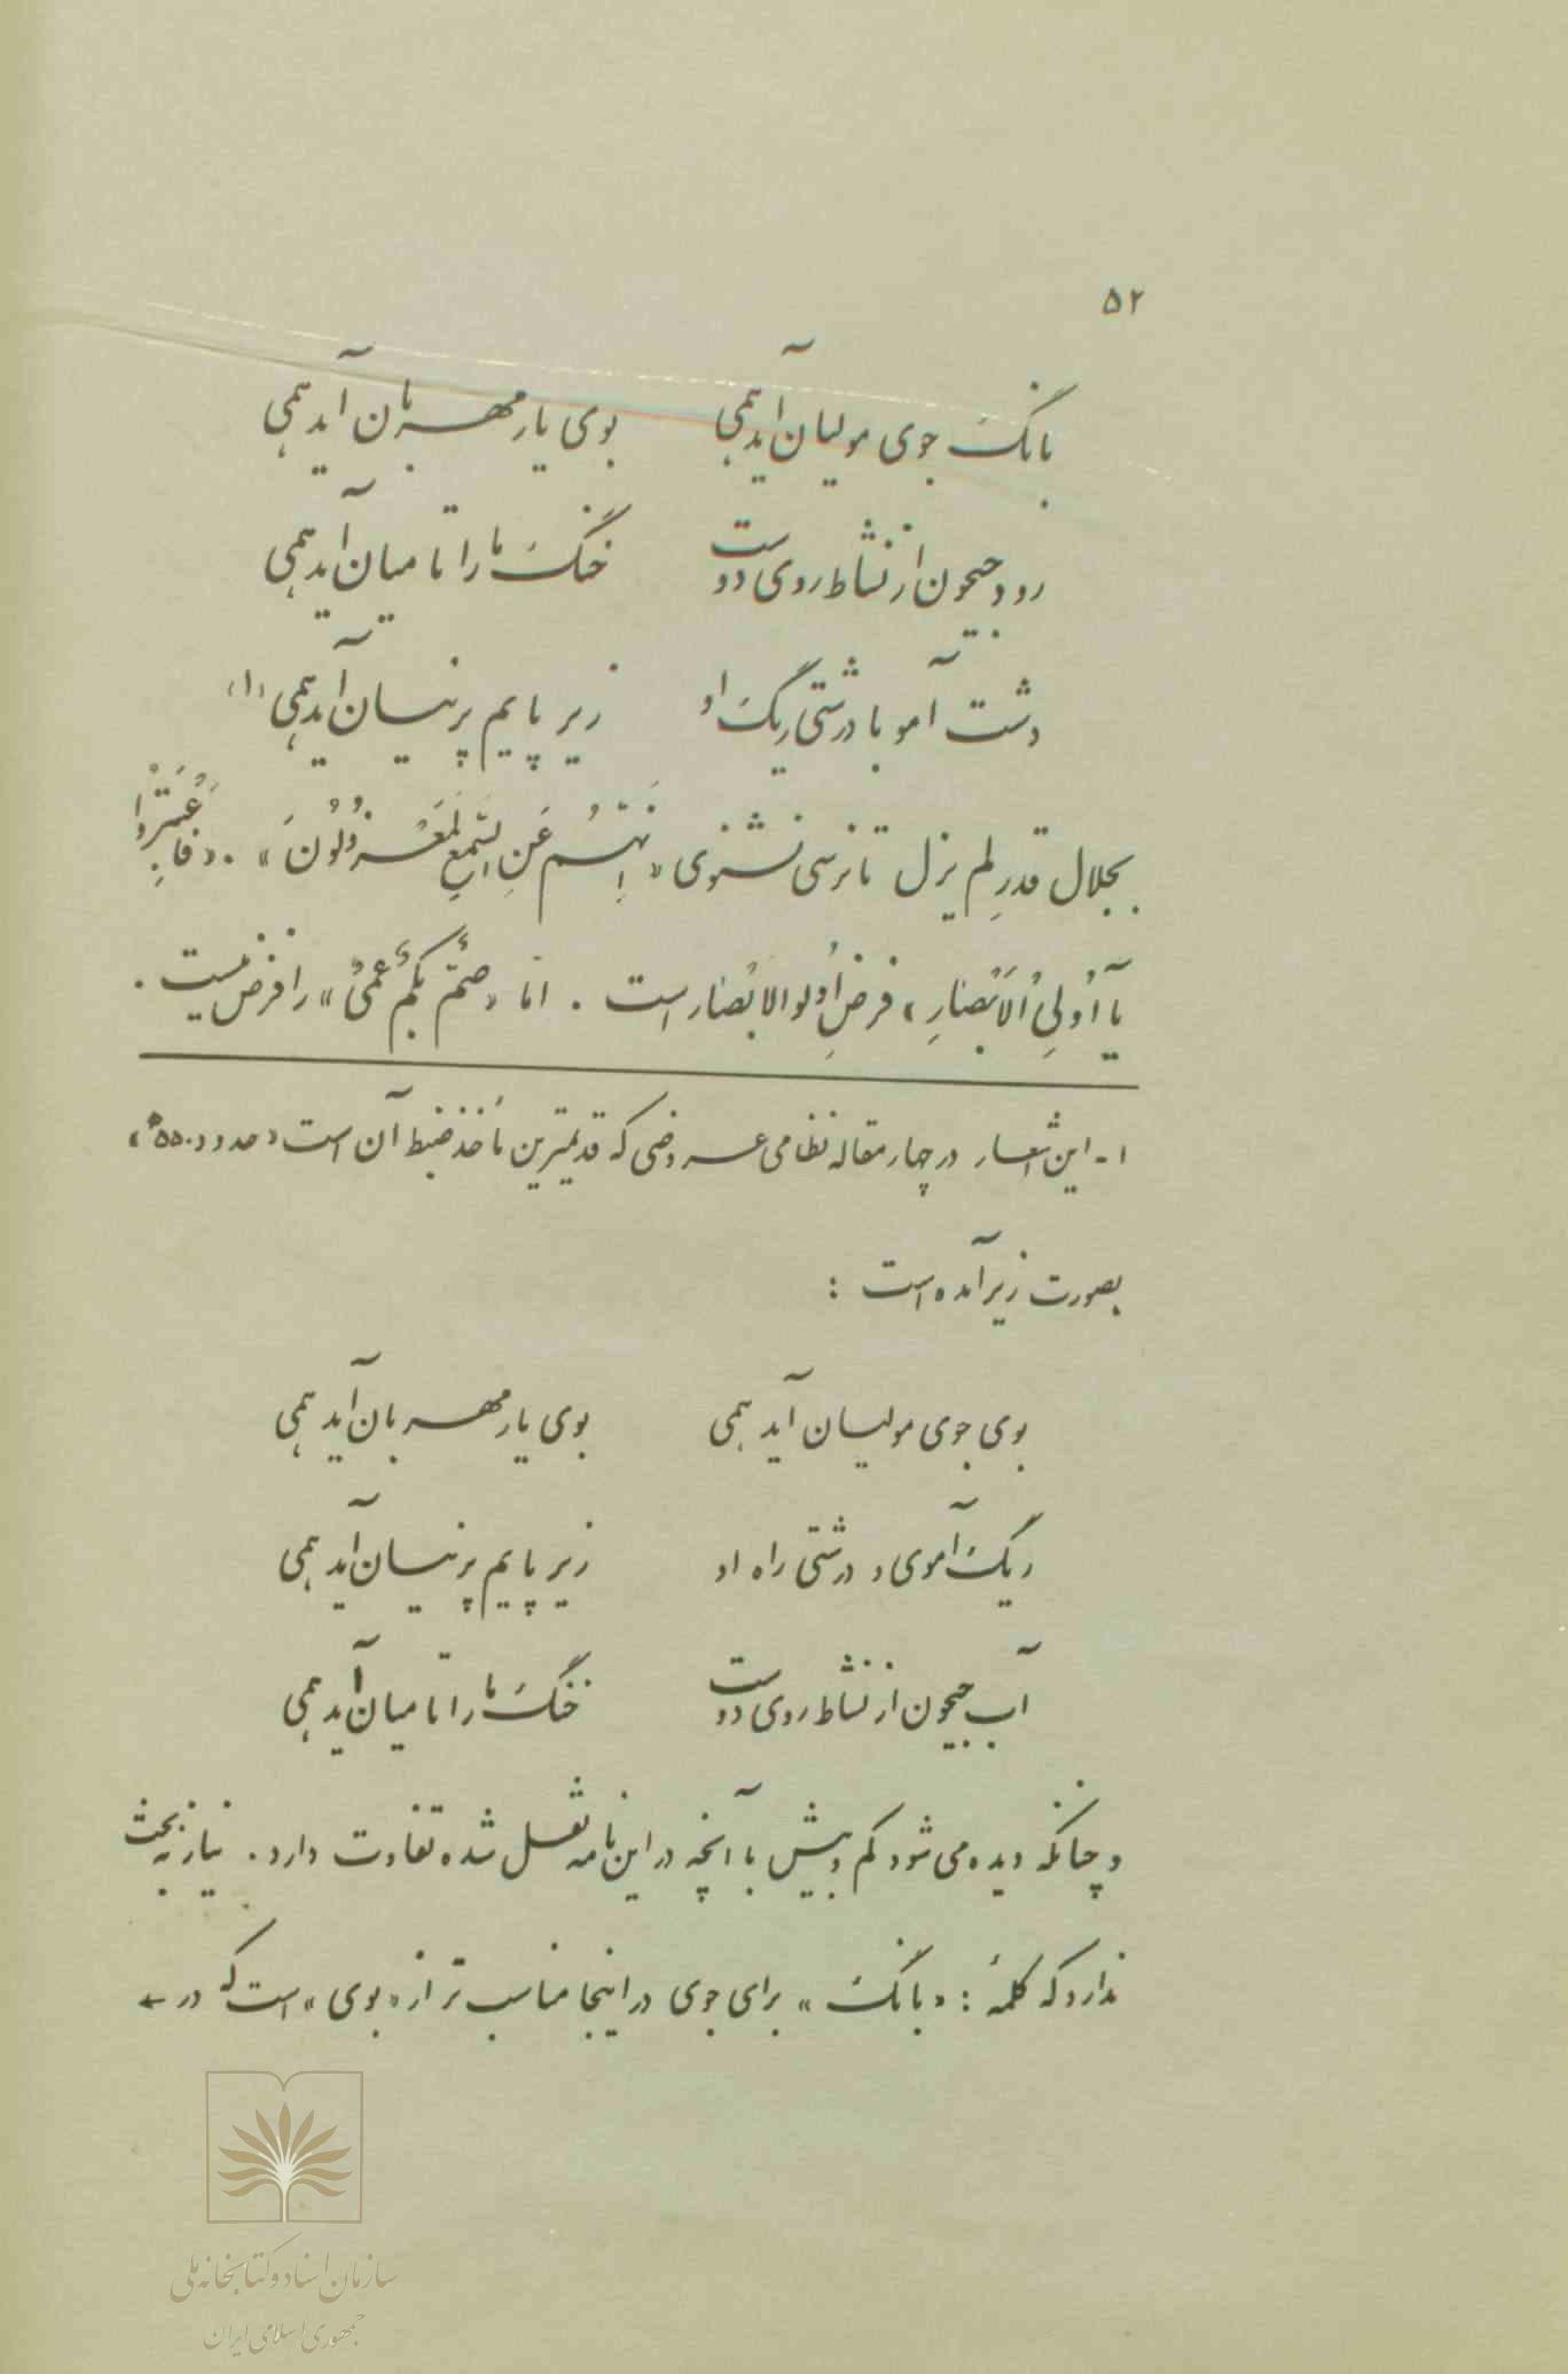 ۵۲
بانگ جوی مولیان آید همی    بوی یار مهربان آید همی
رود جیحون از نشاط روی دوست    خنگ ما را تا میان آید همی
دشت آمو با درشتی ریگ او    زیر پایم پرنیان آید همی (۱)
بجلال قدرِ لم یزل تا نرسی نشنوی «اِنَّهُمْ عَنِ السَّمْعِ لَمَعْزُولُونَ» . «فَاعْتَبِرُوا
یٰآ اُولِی الْاَبْصٰارِ» فرضِ اُولوالابْصٰار است . امّا «صُمٌّ بُکْمٌ عُمْیٌ» را فرض نیست .
۱ - این اشعار در چهار مقاله نظامی عروضی که قدیمترین مأخذ ضبط آن است «حدود ۵۵۰ ه»
بصورت زیر آمده است :
بوی جوی مولیان آید همی    بوی یار مهربان آید همی
ریگ آموی و درشتی راه او    زیر پایم پرنیان آید همی
آب جیحون از نشاط روی دوست    خنگ ما را تا میان آید همی
و چنانکه دیده می شود کم و بیش با آنچه در این نامه نقل شده تفاوت دارد . نیاز به بحث
ندارد که کلمهٔ : «بانگ» برای جوی در اینجا مناسب تر از «بوی» است که در ←
سازمان اسناد و کتابخانه ملی
جمهوری اسلامی ایران